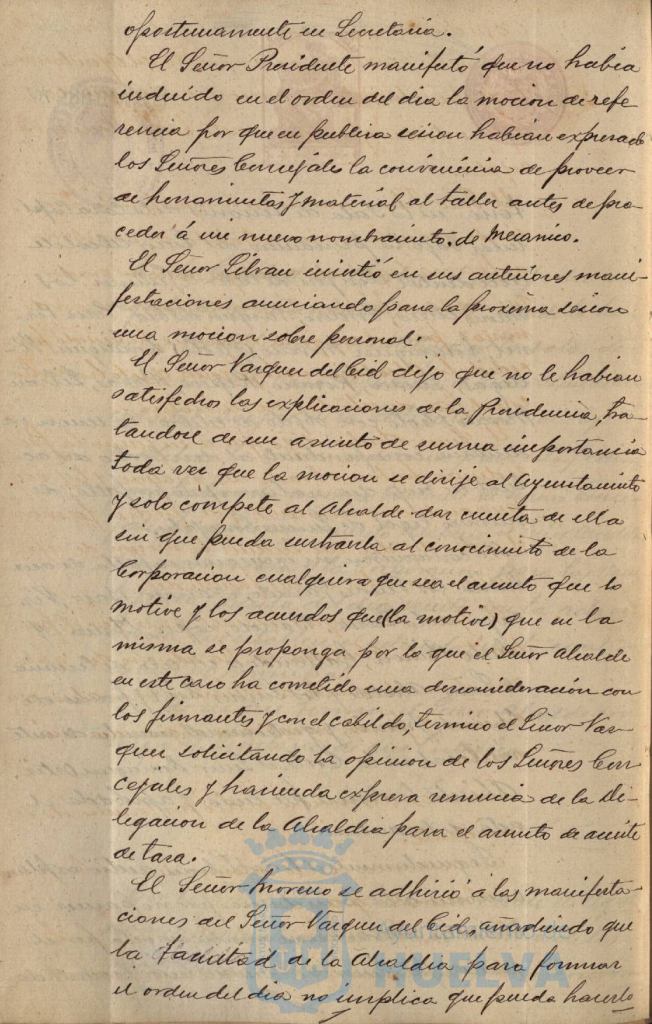 oportunamente en Secretaria.
El Señor Presidente manifestó que no habia
incluido en el orden del dia la mocion de refe
rencia por que en publica sesion habian expresado
los Señores Concejales la conveniencia de proveer
de herramientas y material al taller antes de pro
ceder á un nuevo nombramiento de Mecanico.
El Señor Silvan insistió en sus anteriores mani
festaciones anunciando para la proxima sesion
una mocion sobre personal.
El Señor Vazquez del Cid dijo que no le habian
satisfechos las explicaciones de la Presidencia, tra-
tandose de un asunto de suma importancia
toda vez que la mocion se dirije al Ayuntamiento
y solo compete al Alcalde dar cuenta de ella
sin que pueda sustraerla al conocimiento de la
Corporacion cualquiera que sea el asunto que lo
motive y los acuerdos que (la motive) que en la
misma se proponga por lo que el Señor Alcalde
en este caso ha cometido una desconsideración con
los firmantes y con el cabildo, termino el Señor Vaz-
quez solicitando la opinion de los Señores Con-
cejales y haciendo expresa renuncia de la De-
legacion de la Alcaldia para el asunto de aceite
de tasa.
El Señor Moreno se adhirió á las manifesta-
ciones del Señor Vazquez del Cid, añadiendo que
la facultad de la Alcaldia para formar
el orden del dia no implica que pueda hacerlo
Ayuntamiento de
HUELVA